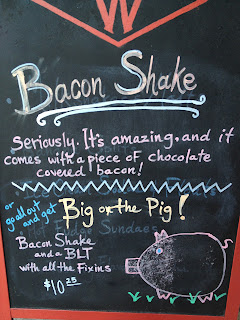 Bacon Shake
Seriously. It's amazing, and it
comes with a piece of chocolate
covered bacon!
or
go all out
and get
Big on the Pig!
Hot Fudge Sundaes
Bacon Shake
and a BLT
with all the Fixins
$10.25